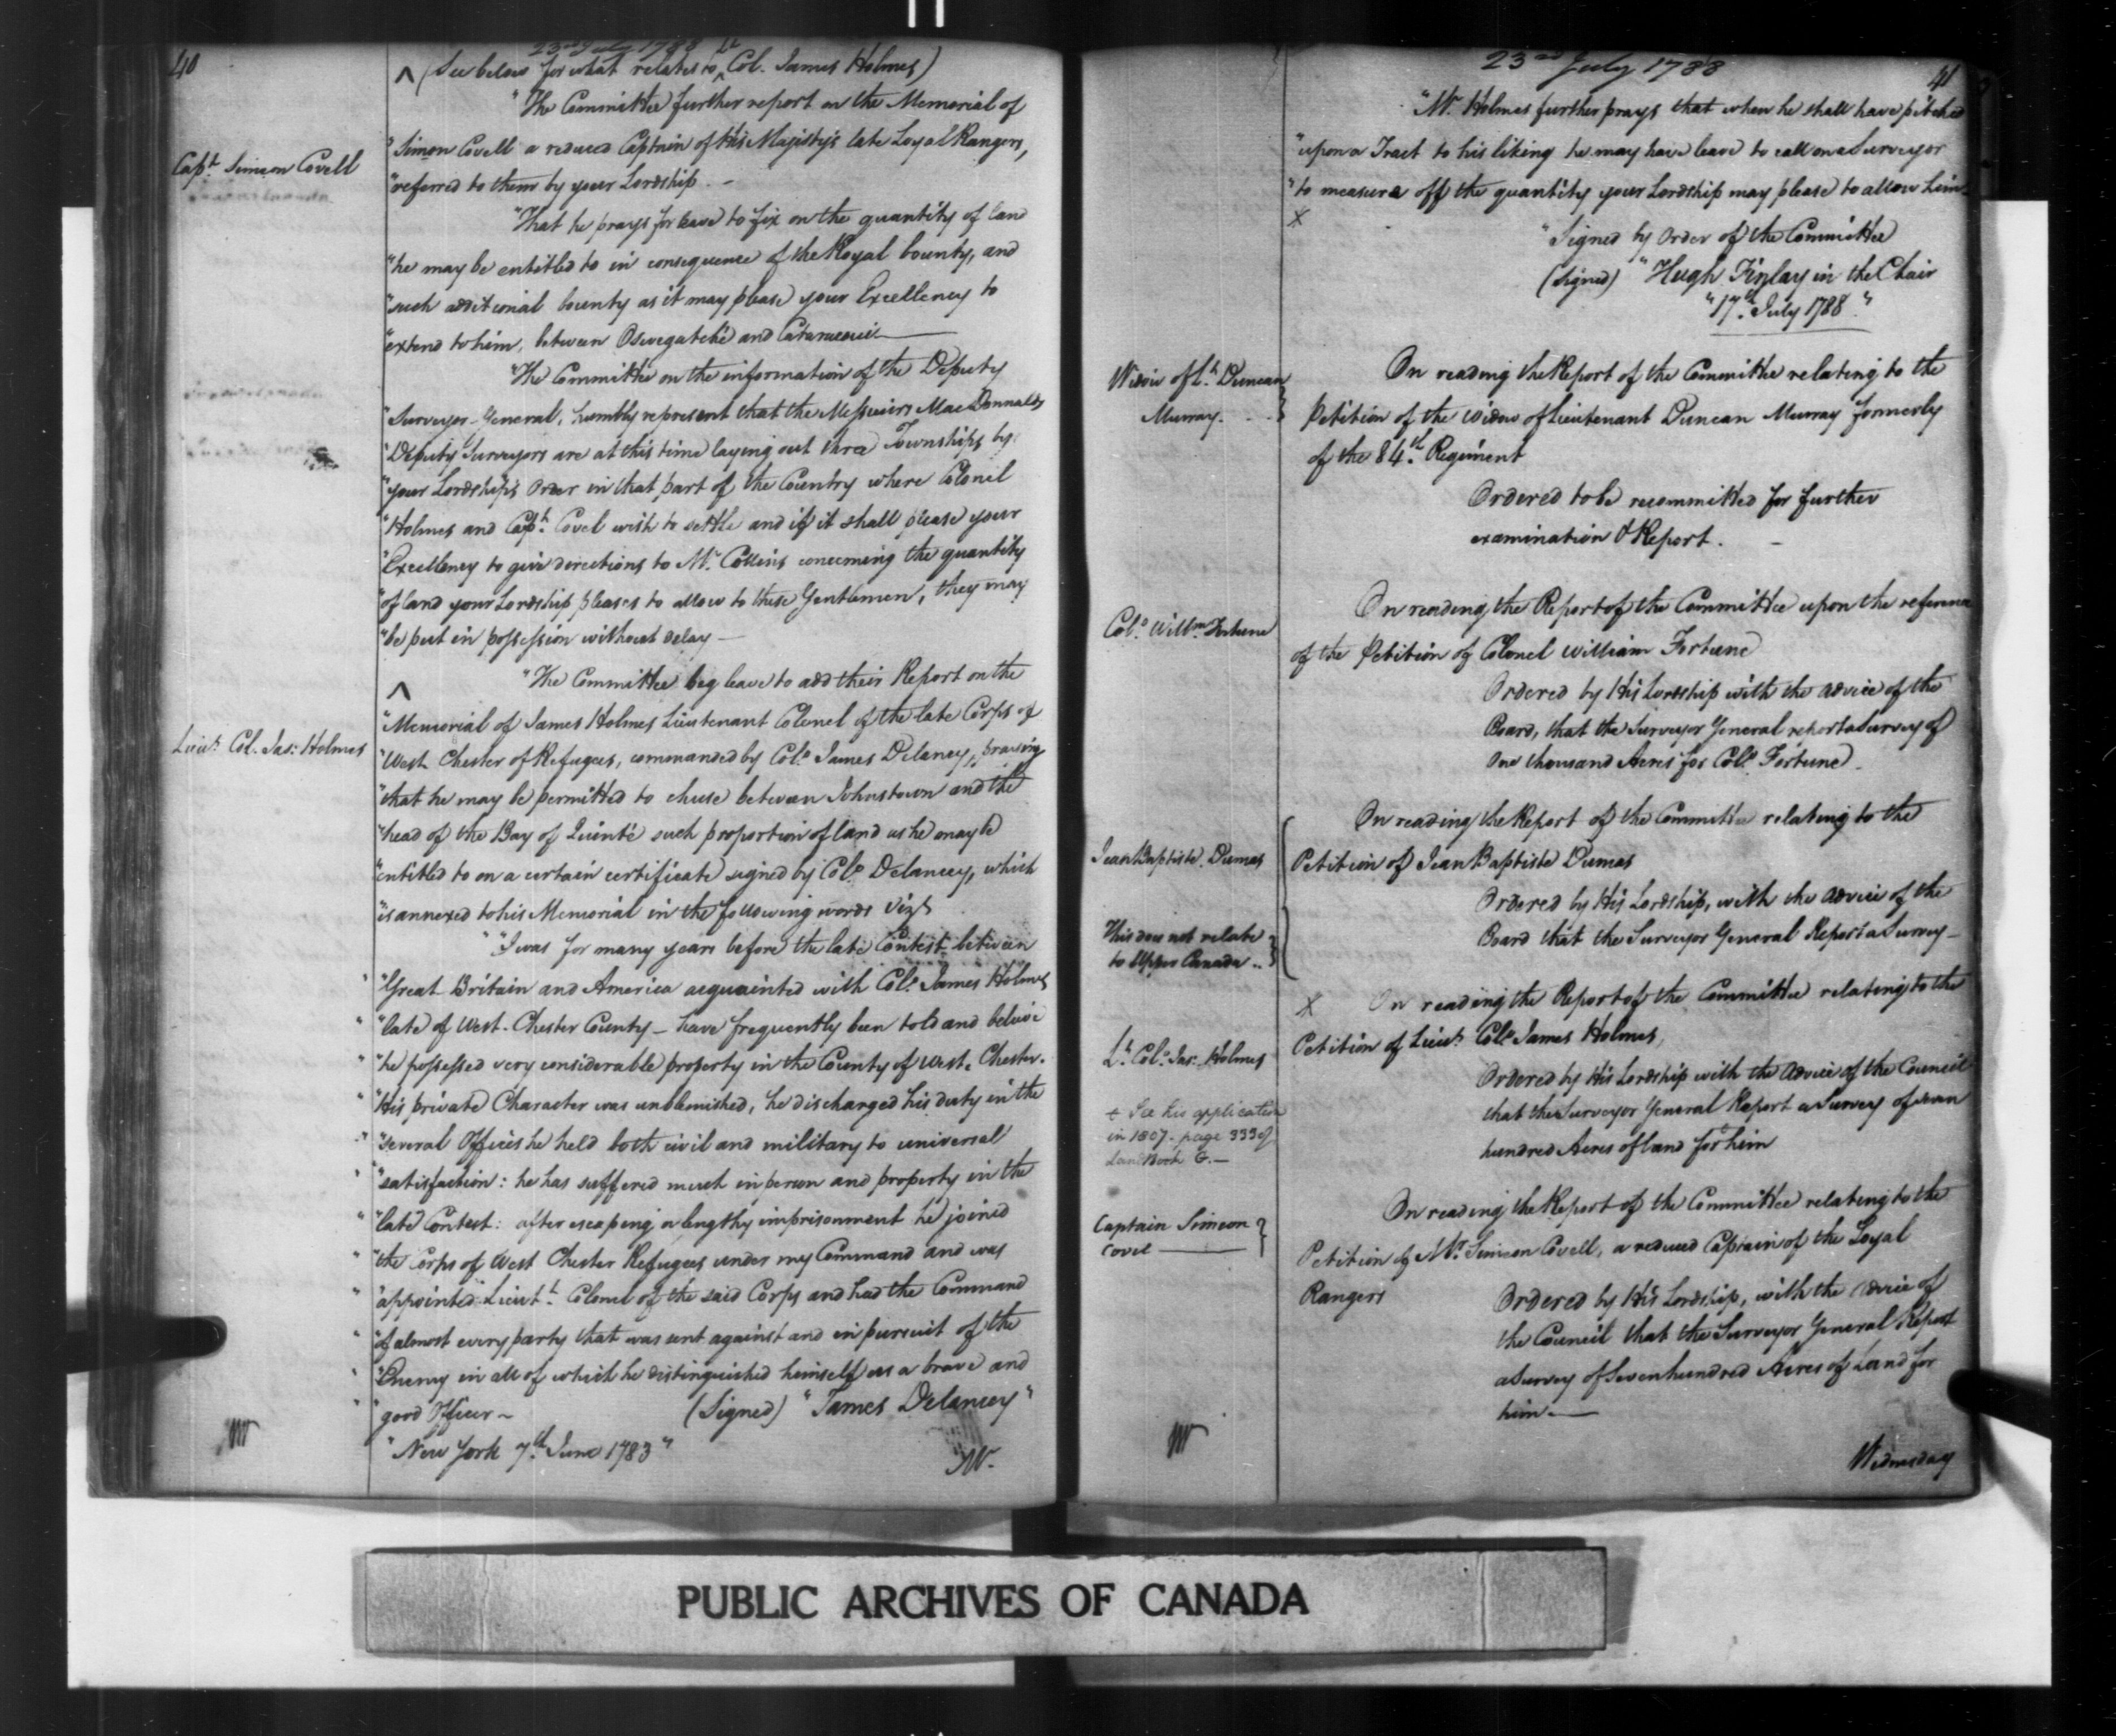 40
23rd July 1788
(See below for what relates to Lt Col. James Holmes)
"The Committee further report on the Memorial of
Capt. Simeon Covell
"Simon Covell a reduced Captain of His Majesty's late Loyal Rangers,
"referred to them by your Lordship. –
"That he prays for leave to fix on the quantity of land
"he may be entitled to in consequence of the Royal bounty, and
"such additional bounty as it may please your Excellency to
"extend to him, between Oswegatché and Cataracoui—
"The Committee on the information of the Deputy
"Surveyor-General, humbly represent that the Messieurs MacDonnalds
"Deputy Surveyors are at this time laying out three Townships by
"your Lordship's Order in that part of the Country where Colonel
"Holmes and Capt. Covel wish to settle and if it shall please your
"Excellency to give directions to Mr. Collins concerning the quantity
"of land your Lordship pleases to allow to these Gentlemen, they may
"be put in possession without delay—
"The Committee beg leave to add their Report on the
Lieut. Col. Jas: Holmes
"Memorial of James Holmes Lieutenant Colonel of the late Corps of
"West Chester of Refugees, commanded by Colo. James Delancy, praying
"that he may be permitted to chuse between Johnstown and the
"head of the Bay of Quinté such proportion of land as he may be
"entitled to on a certain certificate signed by Colo. Delancey, which
"is annexed to his Memorial in the following words Vizt
" "I was for many years before the late Contest between
" "Great Britain and America acquainted with Colo. James Holmes
" "late of West-Chester County – have frequently been told and believe
" "he possessed very considerable property in the County of West-Chester.
" "His private Character was unblemished, he discharged his duty in the
" "several Offices he held both civil and military to universal
" "satisfaction: he has suffered much in person and property in the
" "late Contest: after escaping a lengthy imprisonment he joined
" "the Corps of West Chester Refugees under my Command and was
" "appointed Lieutt. Colonel of the said Corps and had the Command
" "of almost every party that was sent against and in pursuit of the
" "Enemy in all of which he distinguished himself as a brave and
" "good Officer – (Signed) "James Delancey"
"New York 7th. June 1783"
23rd July 1788
41
"Mr. Holmes further prays that when he shall have pitched
"upon a Tract to his liking he may have leave to call on a Surveyor
"to measure off the quantity your Lordship may please to allow him–
X
"Signed by Order of the Committee
(signed) "Hugh Finlay in the Chair
"17th. July 1788."
On reading the Report of the Committee relating to the
Widow of Lt. Duncan
Murray. - -
Petition of the Widow of Lieutenant Duncan Murray formerly
of the 84th. Regiment
Ordered to be recommitted for further
examination & Report. –
On reading the Report of the Committee upon the reference
Colo. Willm. Fortune
of the Petition of Colonel William Fortune
Ordered by His Lordship with the advice of the
Board, that the Surveyor General report a Survey of
One thousand Acres for Colo. Fortune –
On reading the Report of the Committee relating to the
Jean Baptiste Dumas
Petition of Jean Baptiste Dumas
Ordered by His Lordship, with the Advice of the
Board that the Surveyor General Report a Survey–
This does not relate
to Upper Canada ..
X On reading the Report of the Committee relating to the
Lt. Colo. Jas. Holmes
Petition of Lieut. Colo James Holmes,
Ordered by His Lordship with the Advice of the Council
that the Surveyor General Report a Survey of seven
hundred Acres of land for him
+ See his application
in 1807 - page 333 of
Land Book G. —
On reading the Report of the Committee relating to the
Captain Simeon
Covel —
Petition of Mr. Simeon Covell, a reduced Captain of the Loyal
Rangers
Ordered by His Lordship, with the Advice of
the Council that the Surveyor General Report
a Survey of Seven hundred Acres of Land for
him. —
Wednesday
PUBLIC ARCHIVES OF CANADA